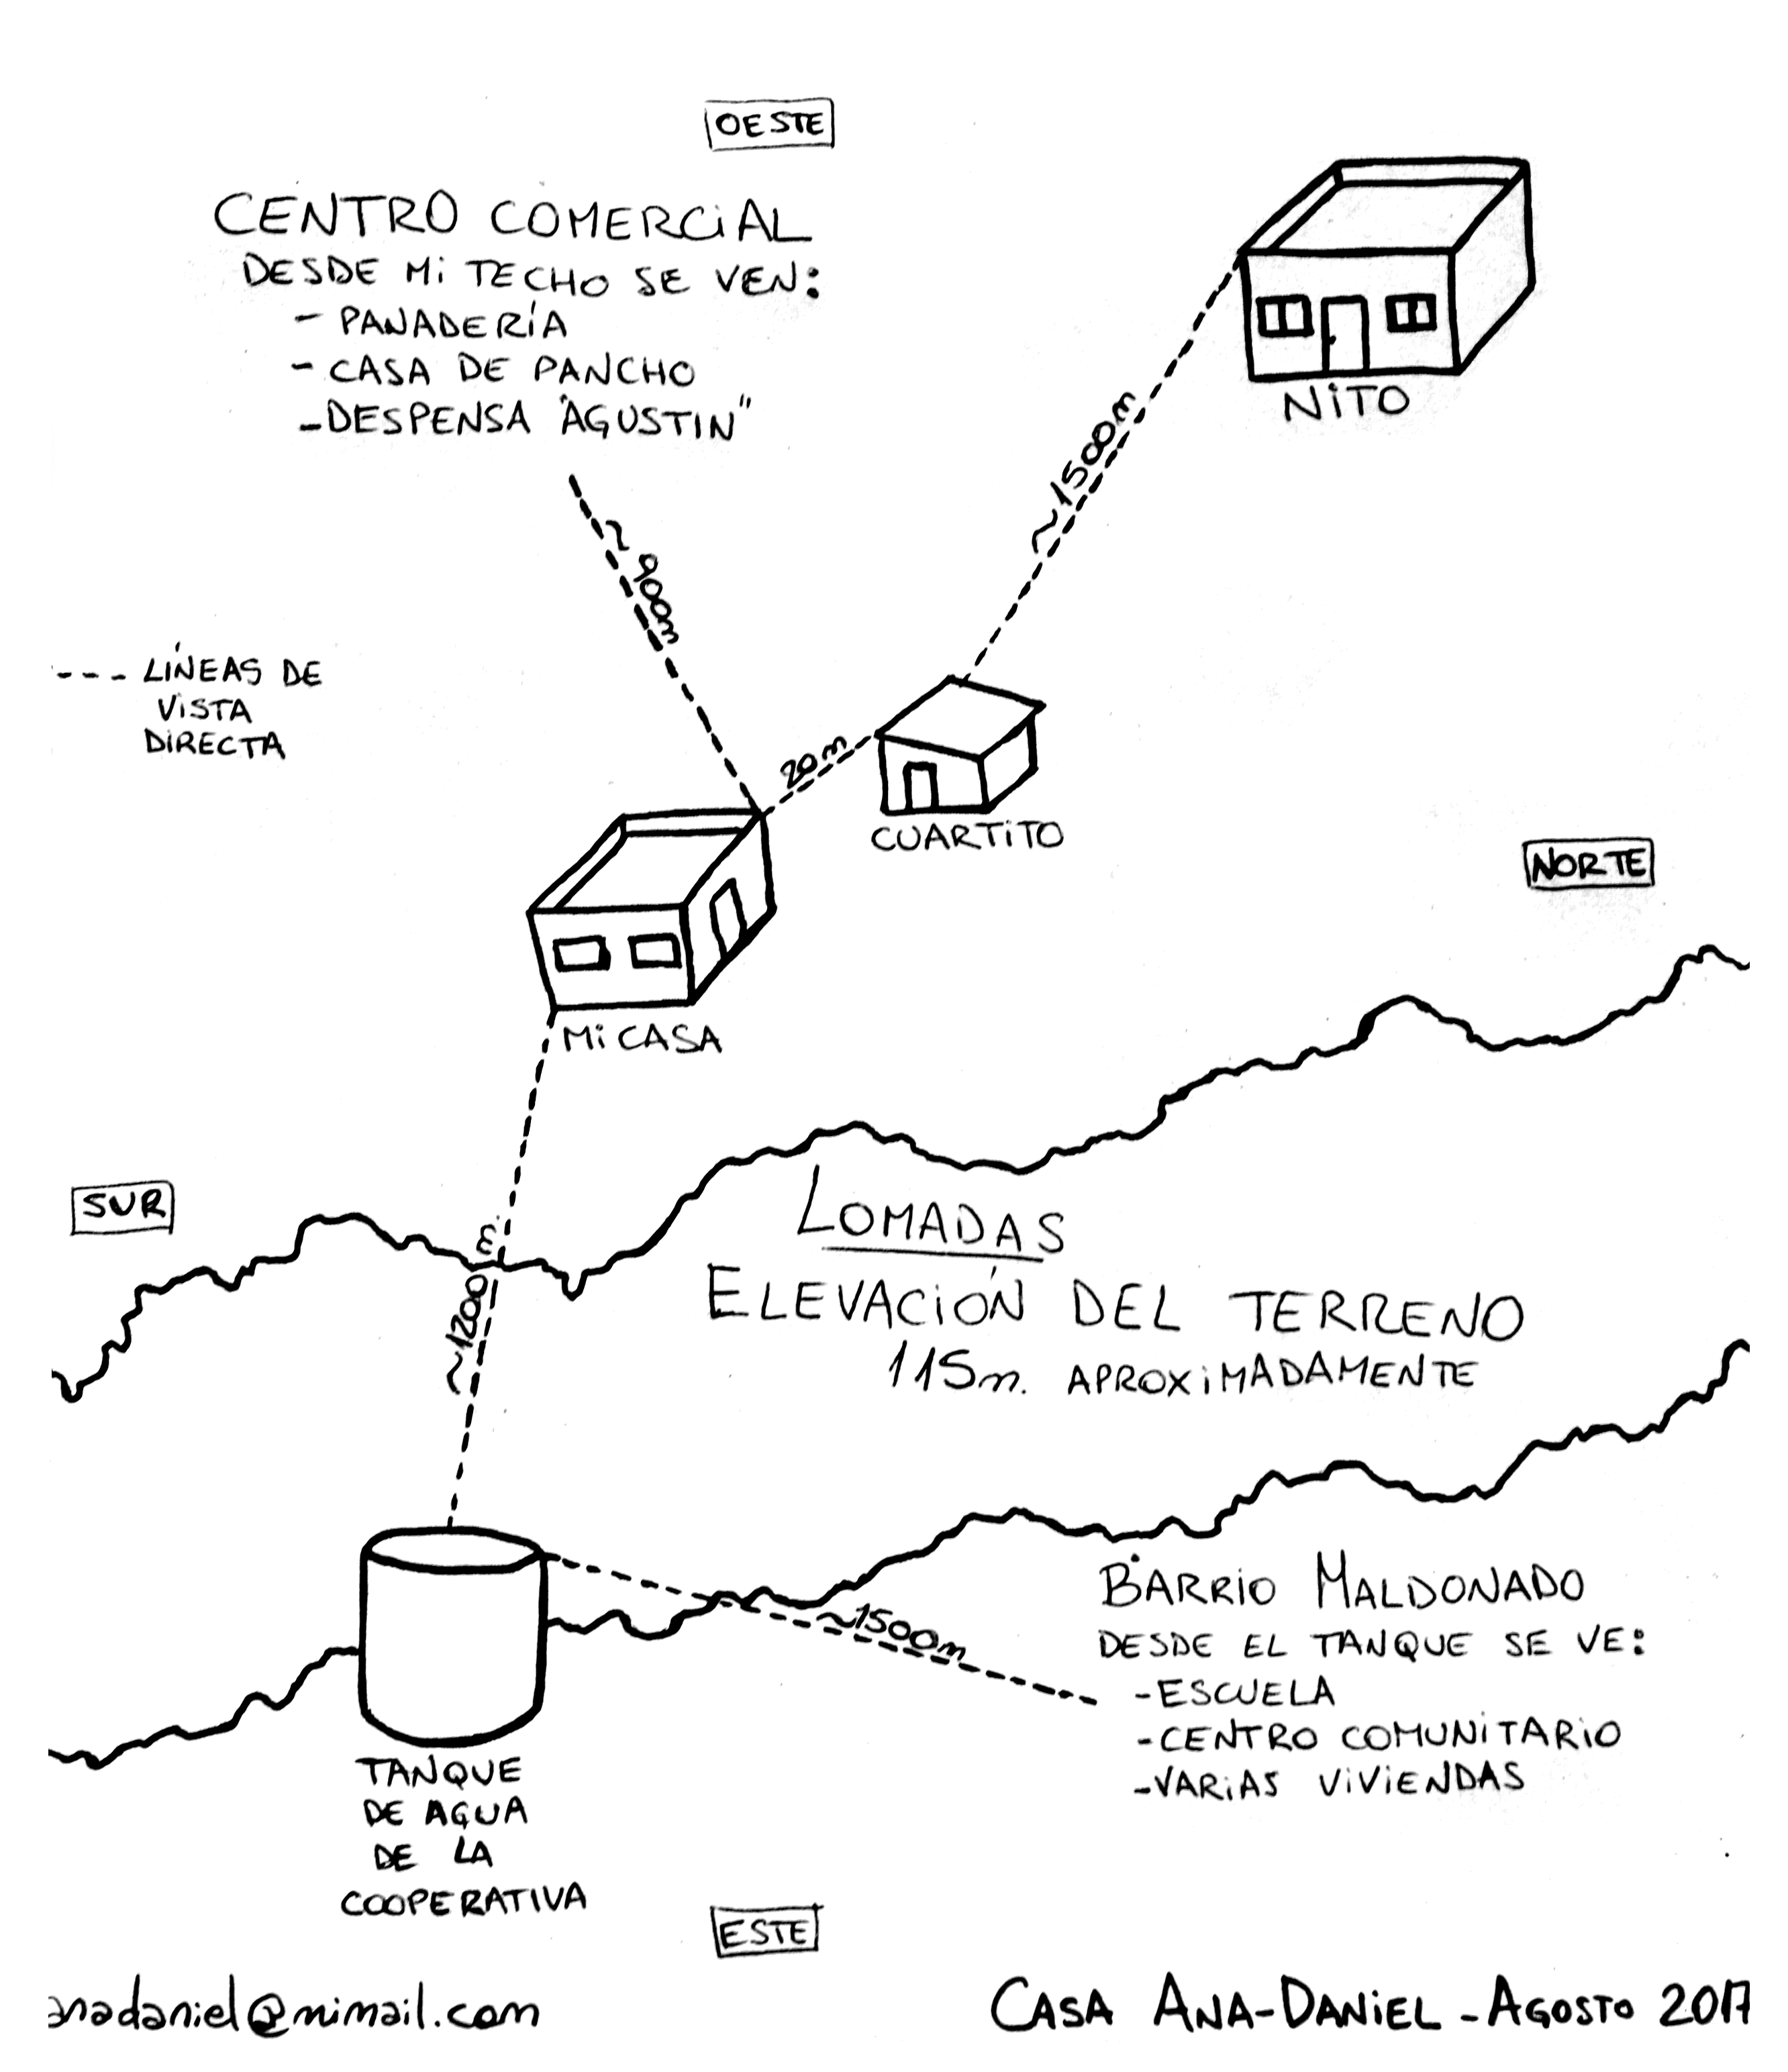 OESTE
CENTRO COMERCIAL
DESDE MI TECHO SE VEN:
- PANADERÍA
- CASA DE PANCHO
- DESPENSA "AGUSTIN"
NITO
~1500m
~900m
--- LÍNEAS DE
VISTA
DIRECTA
20m
CUARTITO
NORTE
MI CASA
SUR
~1200m
LOMADAS
ELEVACIÓN DEL TERRENO
115m. APROXIMADAMENTE
BARRIO MALDONADO
DESDE EL TANQUE SE VE:
- ESCUELA
- CENTRO COMUNITARIO
- VARIAS VIVIENDAS
~1500m
TANQUE
DE AGUA
DE LA
COOPERATIVA
ESTE
anadaniel@mimail.com
CASA ANA-DANIEL - AGOSTO 2017